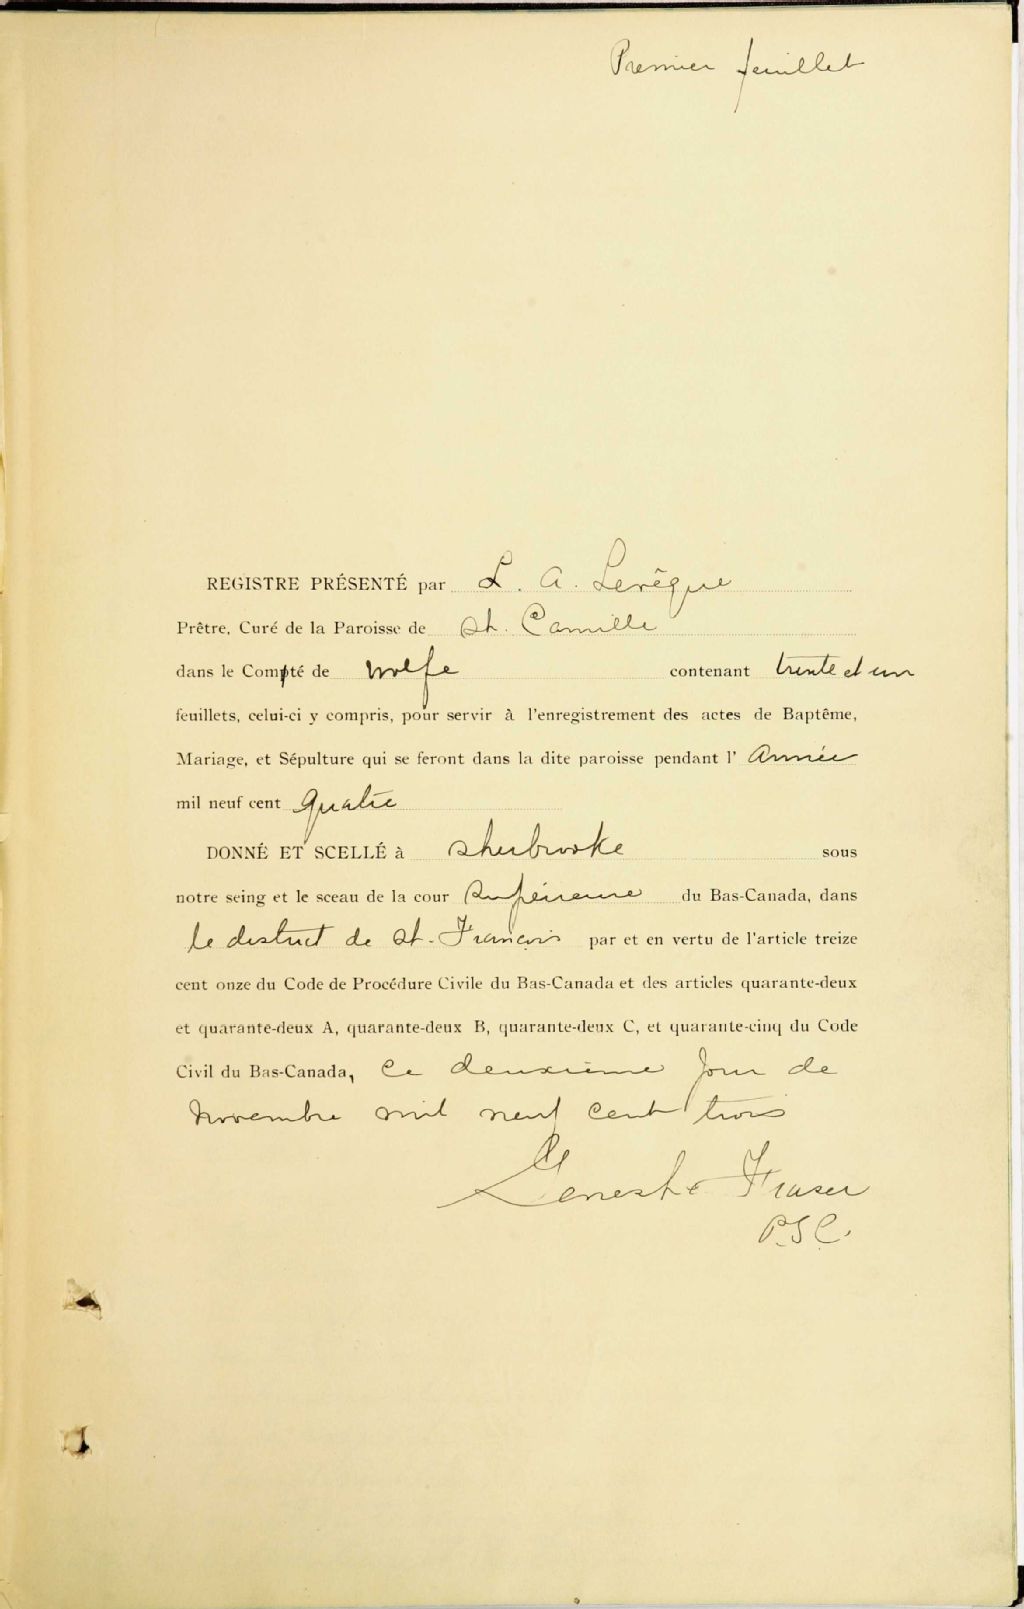 Premier feuillet
REGISTRE PRÉSENTÉ par L. A. Levêque
Prêtre, Curé de la Paroisse de St. Camille
dans le Compté de Wolfe contenant trente et un
feuillets, celui-ci y compris, pour servir à l'enregistrement des actes de Baptême,
Mariage, et Sépulture qui se feront dans la dite paroisse pendant l' Année
mil neuf cent quatre
DONNÉ ET SCELLÉ à Sherbrooke sous
notre seing et le sceau de la cour Supérieure du Bas-Canada, dans
le district de St. François par et en vertu de l'article treize
cent onze du Code de Procédure Civile du Bas-Canada et des articles quarante-deux
et quarante-deux A, quarante-deux B, quarante-deux C, et quarante-cinq du Code
Civil du Bas-Canada, ce deuxième jour de
Novembre mil neuf cent trois
Genest & Fraser
P.S.C.